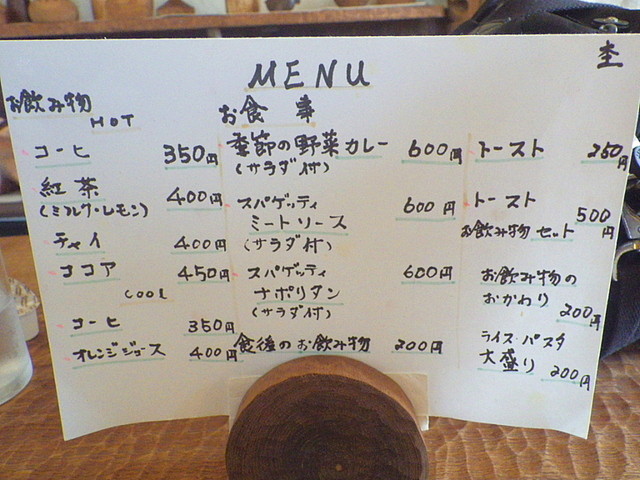 杢
MENU
お飲み物
HOT
コーヒ 350円
紅茶 400円
(ミルク・レモン)
チャイ 400円
ココア 450円
COOL
コーヒ 350円
オレンジジュース 400円
お食事
季節の野菜カレー 600円
(サラダ付)
スパゲッティ
ミートソース 600円
(サラダ付)
スパゲッティ 600円
ナポリタン
(サラダ付)
食後のお飲み物 200円
トースト 250円
トースト
お飲み物セット 500円
お飲み物の
おかわり 200円
ライス・パスタ
大盛り 200円